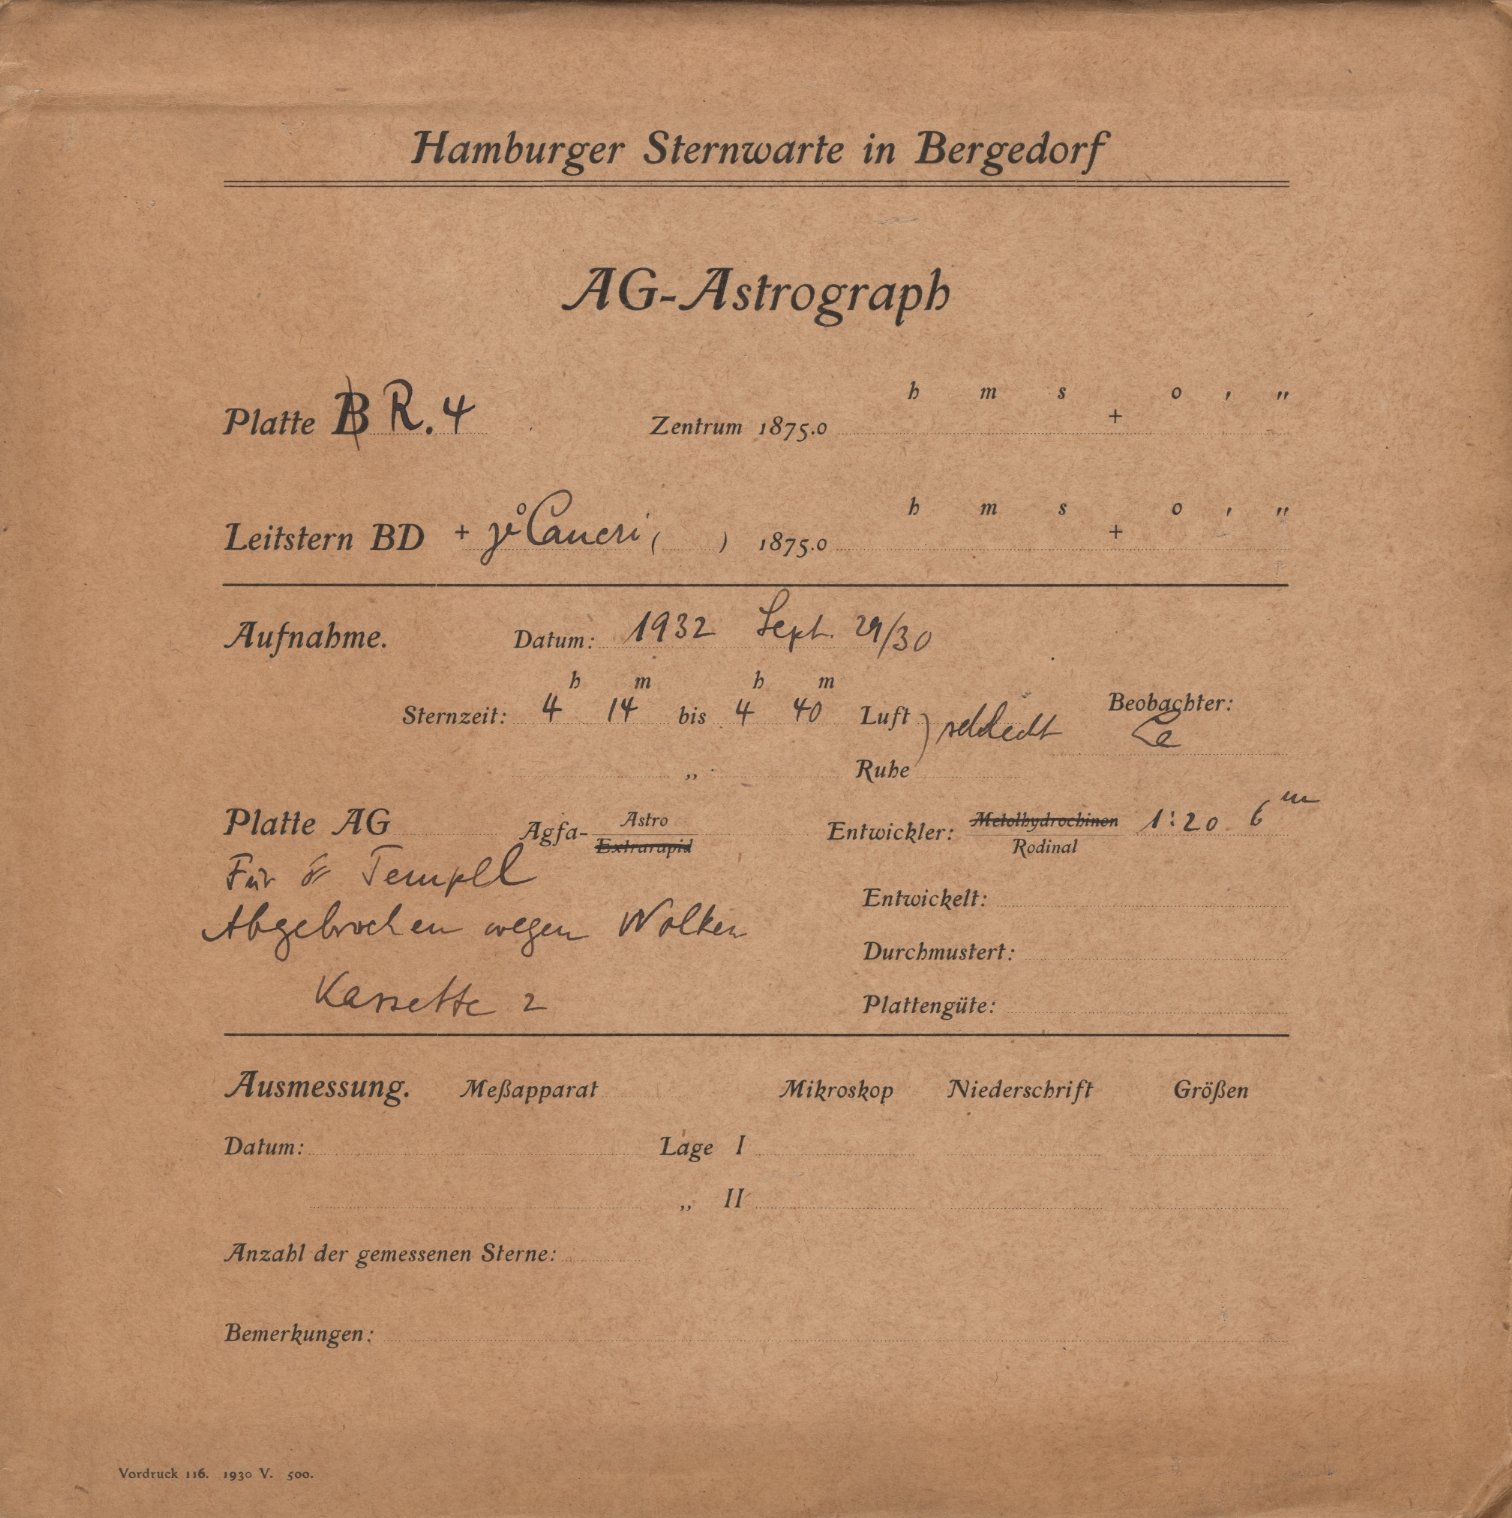 Hamburger Sternwarte in Bergedorf
AG-Astrograph
h m s o ′ ″
Platte B R. 4 Zentrum 1875.0 +
h m s o ′ ″
Leitstern BD + Cancri ( ) 1875.0 +
Aufnahme. Datum: 1932 Sept. 29/30
h m h m
Sternzeit: 4 14 bis 4 40 Luft ) schlecht Beobachter:
„ Ruhe
Platte AG Agfa- Astro Extrarapid Entwickler: Metolhydrochinon Rodinal 1:20 6 m
Für Tempel
Entwickelt:
Abgebrochen wegen Wolken
Durchmustert:
Kassette 2
Plattengüte:
Ausmessung. Meßapparat Mikroskop Niederschrift Größen
Datum: Lage I
„ II
Anzahl der gemessenen Sterne:
Bemerkungen:
Vordruck 116. 1930 V. 500.